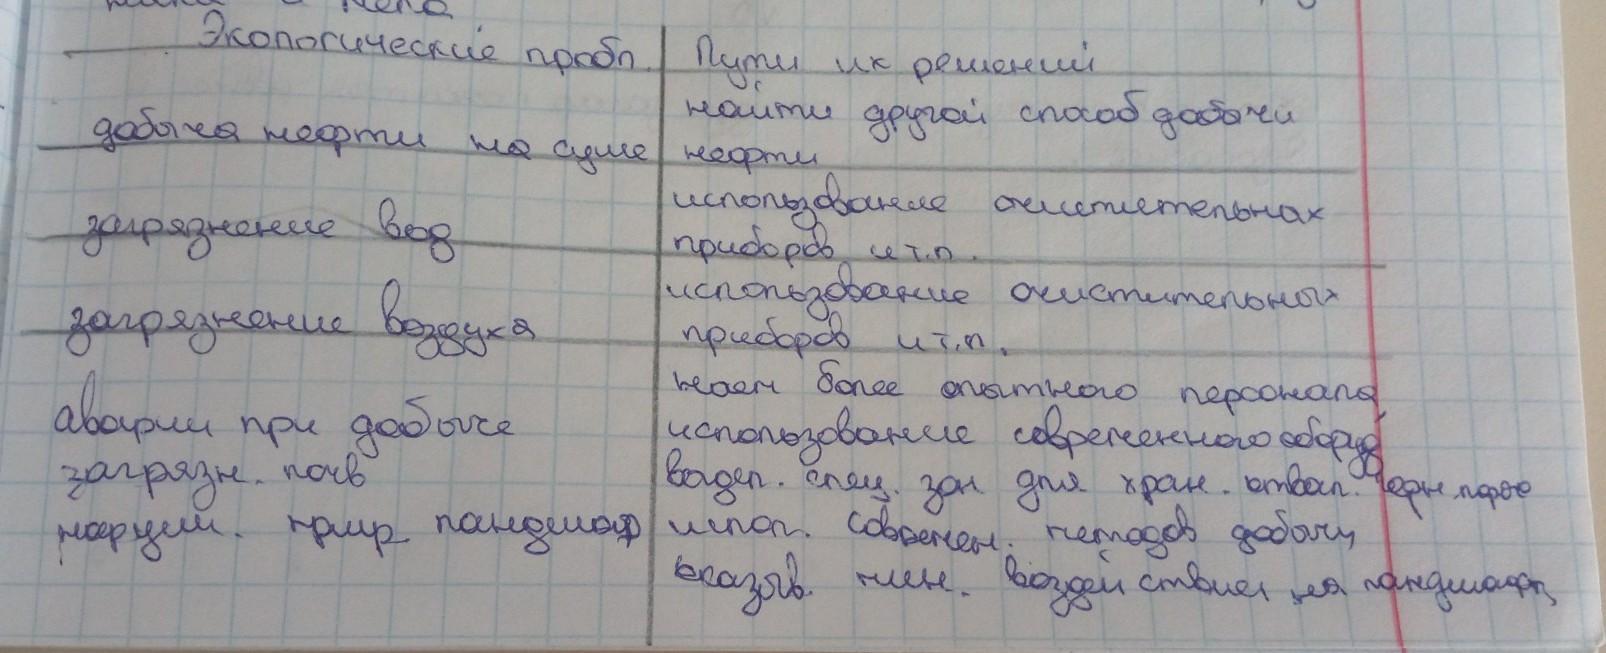 мела
Экологические пробл.
Пути их решений
найти другой способ добычи
добыча нефти на суше
нефти
использование очистительных
загрязнение вод
приборов и т.п.
использование очистительных
загрязнение воздуха
приборов и т.п.
наем более опытного персонала
аварии при добыче
использование современного оборуд
загрязн. почв
выдел. спец. зон для хран. отвал. черн. пород
наруш. прир ландшаф
испол. современ. методов добычи
оказыв. мин. воздействие на ландшафт